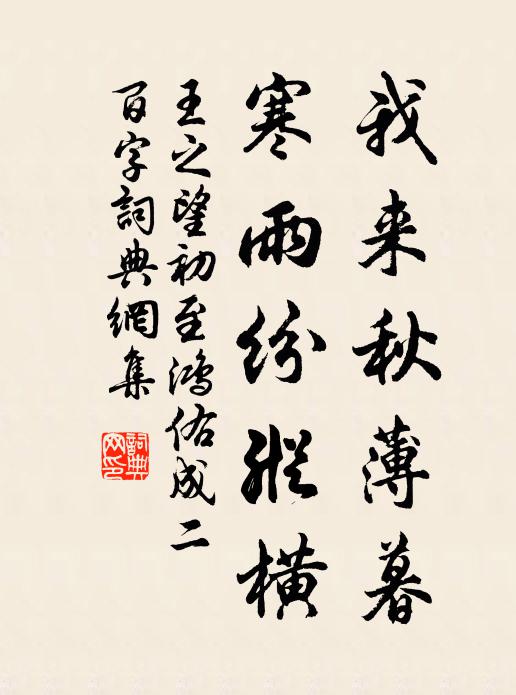 我来秋薄暮
寒雨纷縱橫
王之望初至鴻佑成二
百字詞典網集
詞典网印